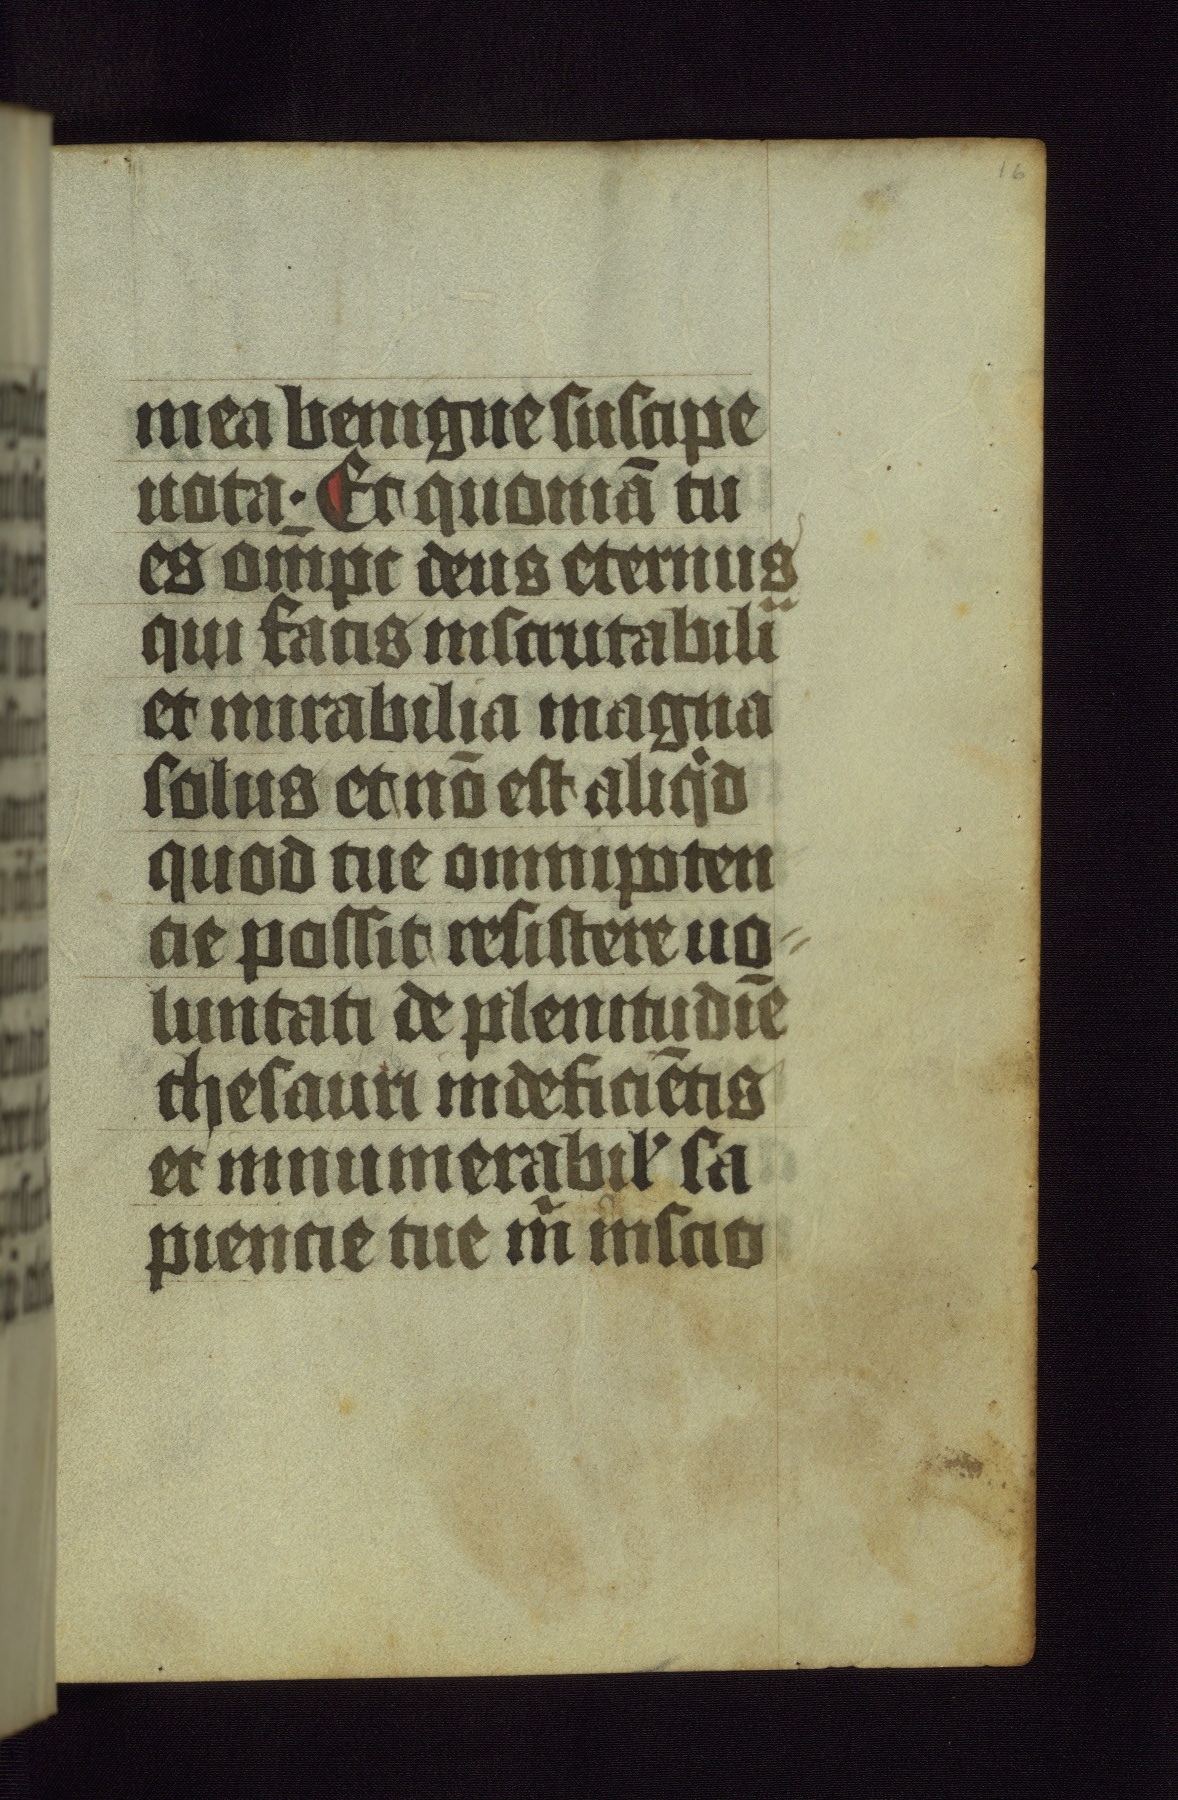 16
mea benigne suscipe
uota· Et quoniā tu
es om̄pt deus eternus
qui facis inscrutabili
et mirabilia magna
solus et nō est aliqͥd
quod tue omnipoten
cie possit resistere uo
luntati de plenitudīe
thesauri indeficiētis
et innumerabil' sa
piencie tue m̄ inscio